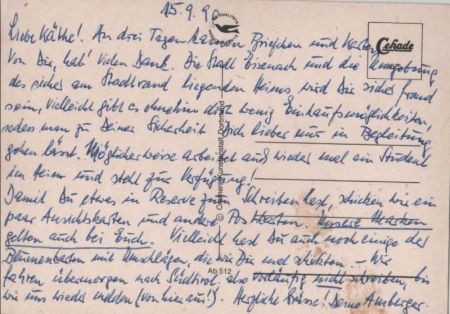 15.9.90
Cekade
Liebe Käthe! An drei Tagen kamen Briefchen und Karten
von Dir, hab' vielen Dank. Die Stadt Eisenach und die Umgebung
des sicher am Stadtrand liegenden Heims wird Dir sicher fremd
sein, vielleicht gibt es ohnehin dort wenig Einkaufsmöglichkeiten,
sodass man zu Deiner Sicherheit Dich lieber nur in Begleitung
gehen lässt. Möglicherweise arbeitet auch wieder mal ein Student
im Heim und steht zur Verfügung!
Damit Du etwas in Reserve zum Schreiben hast, schicken wir ein
paar Ansichtskarten und andere Postkarten. Unsere Marken
gelten auch bei Euch. Vielleicht hast Du auch noch einige der
Blumenkarten mit Umschlägen, die wir Dir mal schickten. – Wir
Ab 512
fahren übermorgen nach Südtirol, also vorläufig nicht schreiben, bis
wir uns wieder melden (von hier aus!). Herzliche Grüsse! Deine Amberger.